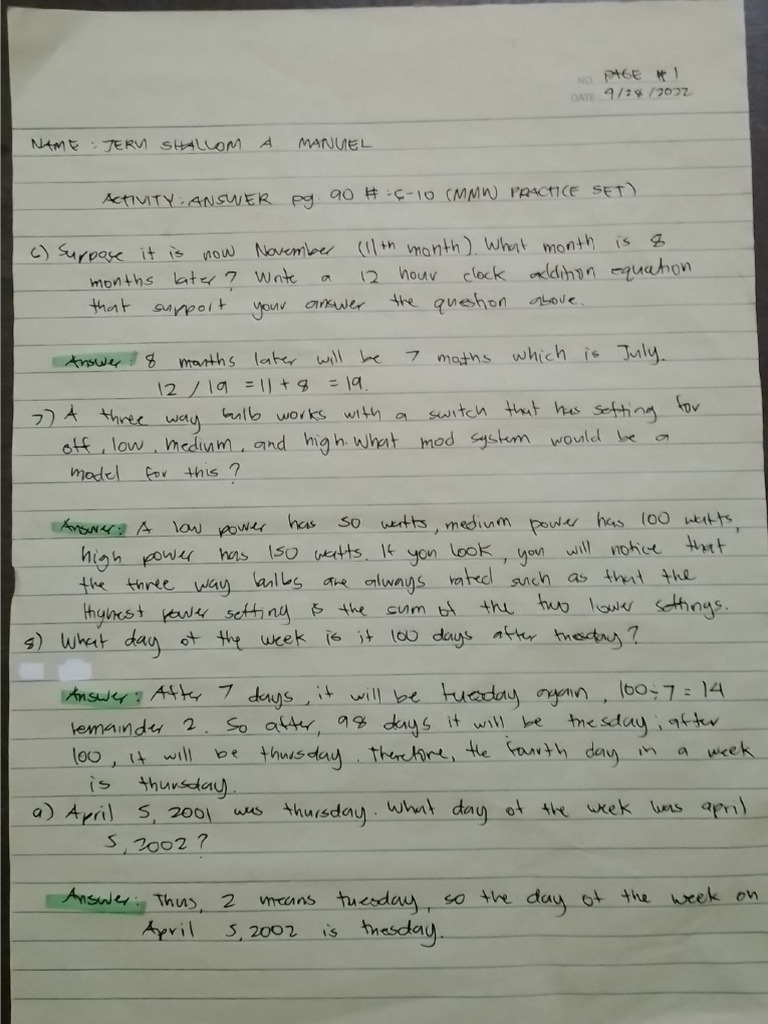 NO. PAGE #1
DATE 9/28/2022
NAME : JERVI SHALLOM A MANUEL
ACTIVITY : ANSWER pg 90 # : 6-10 (MMW PRACTICE SET)
6) Suppose it is now November (11th month). What month is 8
months later? Write a 12 hour clock addition equation
that support your answer the question above.
Answer: 8 months later will be 7 moths which is July.
12 / 19 = 11 + 8 = 19.
7) A three way bulb works with a switch that has setting for
off, low, medium, and high. What mod system would be a
model for this?
Answer: A low power has 50 watts, medium power has 100 watts,
high power has 150 watts. If you look, you will notice that
the three way bulbs are always rated such as that the
highest power setting is the sum of the two lower settings.
8) What day of the week is it 100 days after tuesday?
Answer: After 7 days, it will be tuesday again, 100÷7 = 14
remainder 2. So after, 98 days it will be tuesday; after
100, it will be thursday. Therefore, the fourth day in a week
is thursday.
9) April 5, 2001 was thursday. What day of the week was april
5, 2002?
Answer: Thus, 2 means tuesday, so the day of the week on
April 5, 2002 is tuesday.